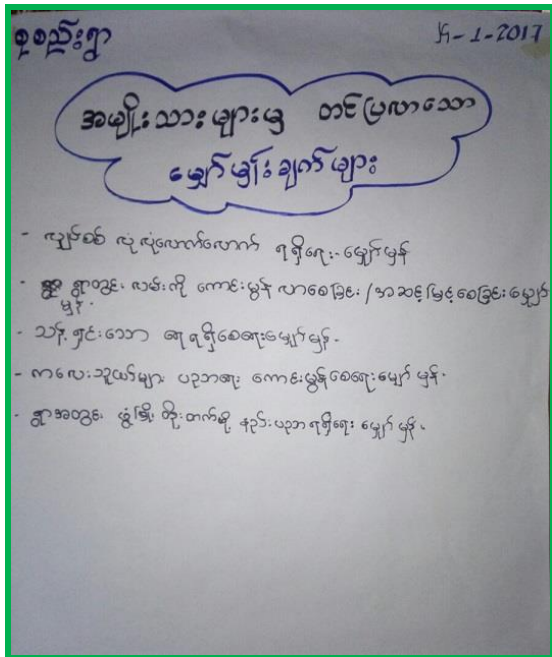 စုစည်းရွာ
အမျိုးသားများမှ တင်ပြလာသော
မျှော်မှန်းချက်များ
- လျှပ်စစ် လုံလုံလောက်လောက် ရရှိရေး မျှော်မှန်း
- ရွာတွင်း လမ်းကို ကောင်းမွန် လာစေခြင်း / အဆင့်မြှင့်စေခြင်း မျှော်
မှန်း.
- သန့်ရှင်းသော ရေ ရရှိစေရေး မျှော်မှန်း.
- ကလေးသူငယ်များ ပညာရေး ကောင်းမွန်စေရေး မျှော်မှန်း.
- ရွာအတွင်း ဖွံ့ဖြိုး တိုးတက်မှု နည်းပညာ ရရှိရေး မျှော်မှန်း.